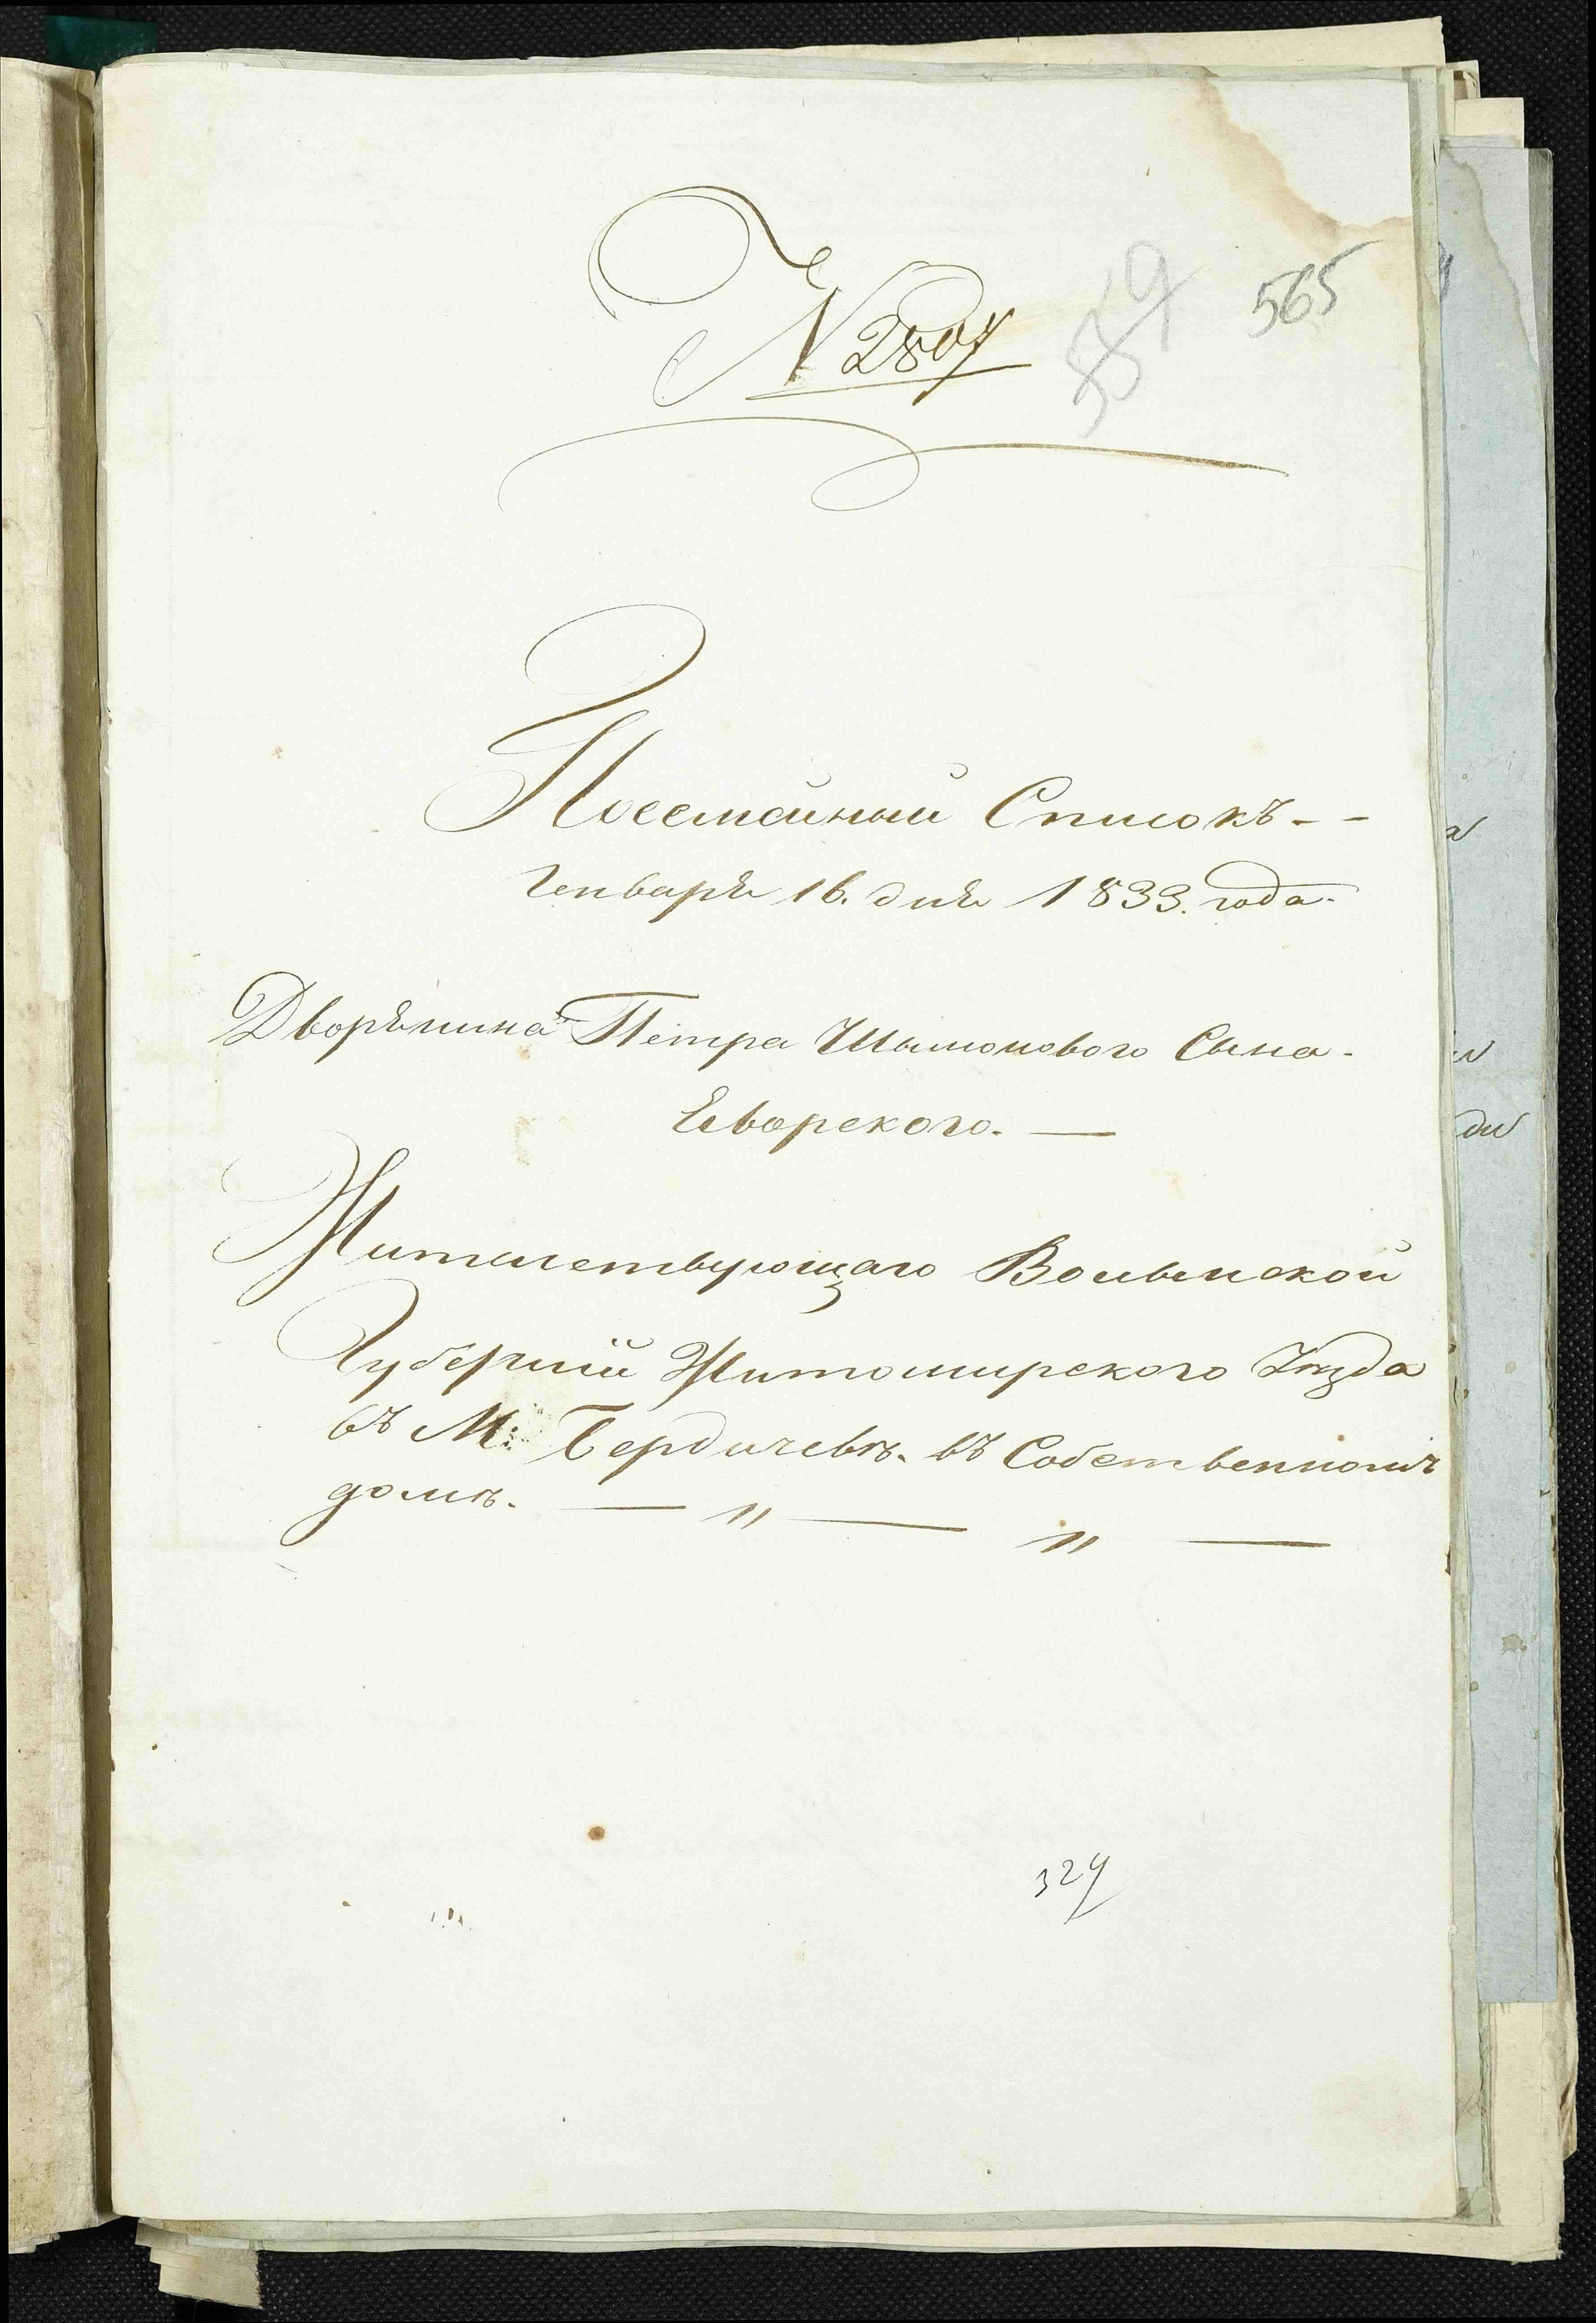 N 2807
565
Посемейный Списокъ - -
Генваря 16. дня 1833. года.
Дворянина Петра Шымонового Сына -
Яворского. —
Жительствующаго Волынской
Губернiи Житомирского Уѣзда
въ М: Бердичевѣ. въ Собственномъ
домѣ. — „ — „ —
324